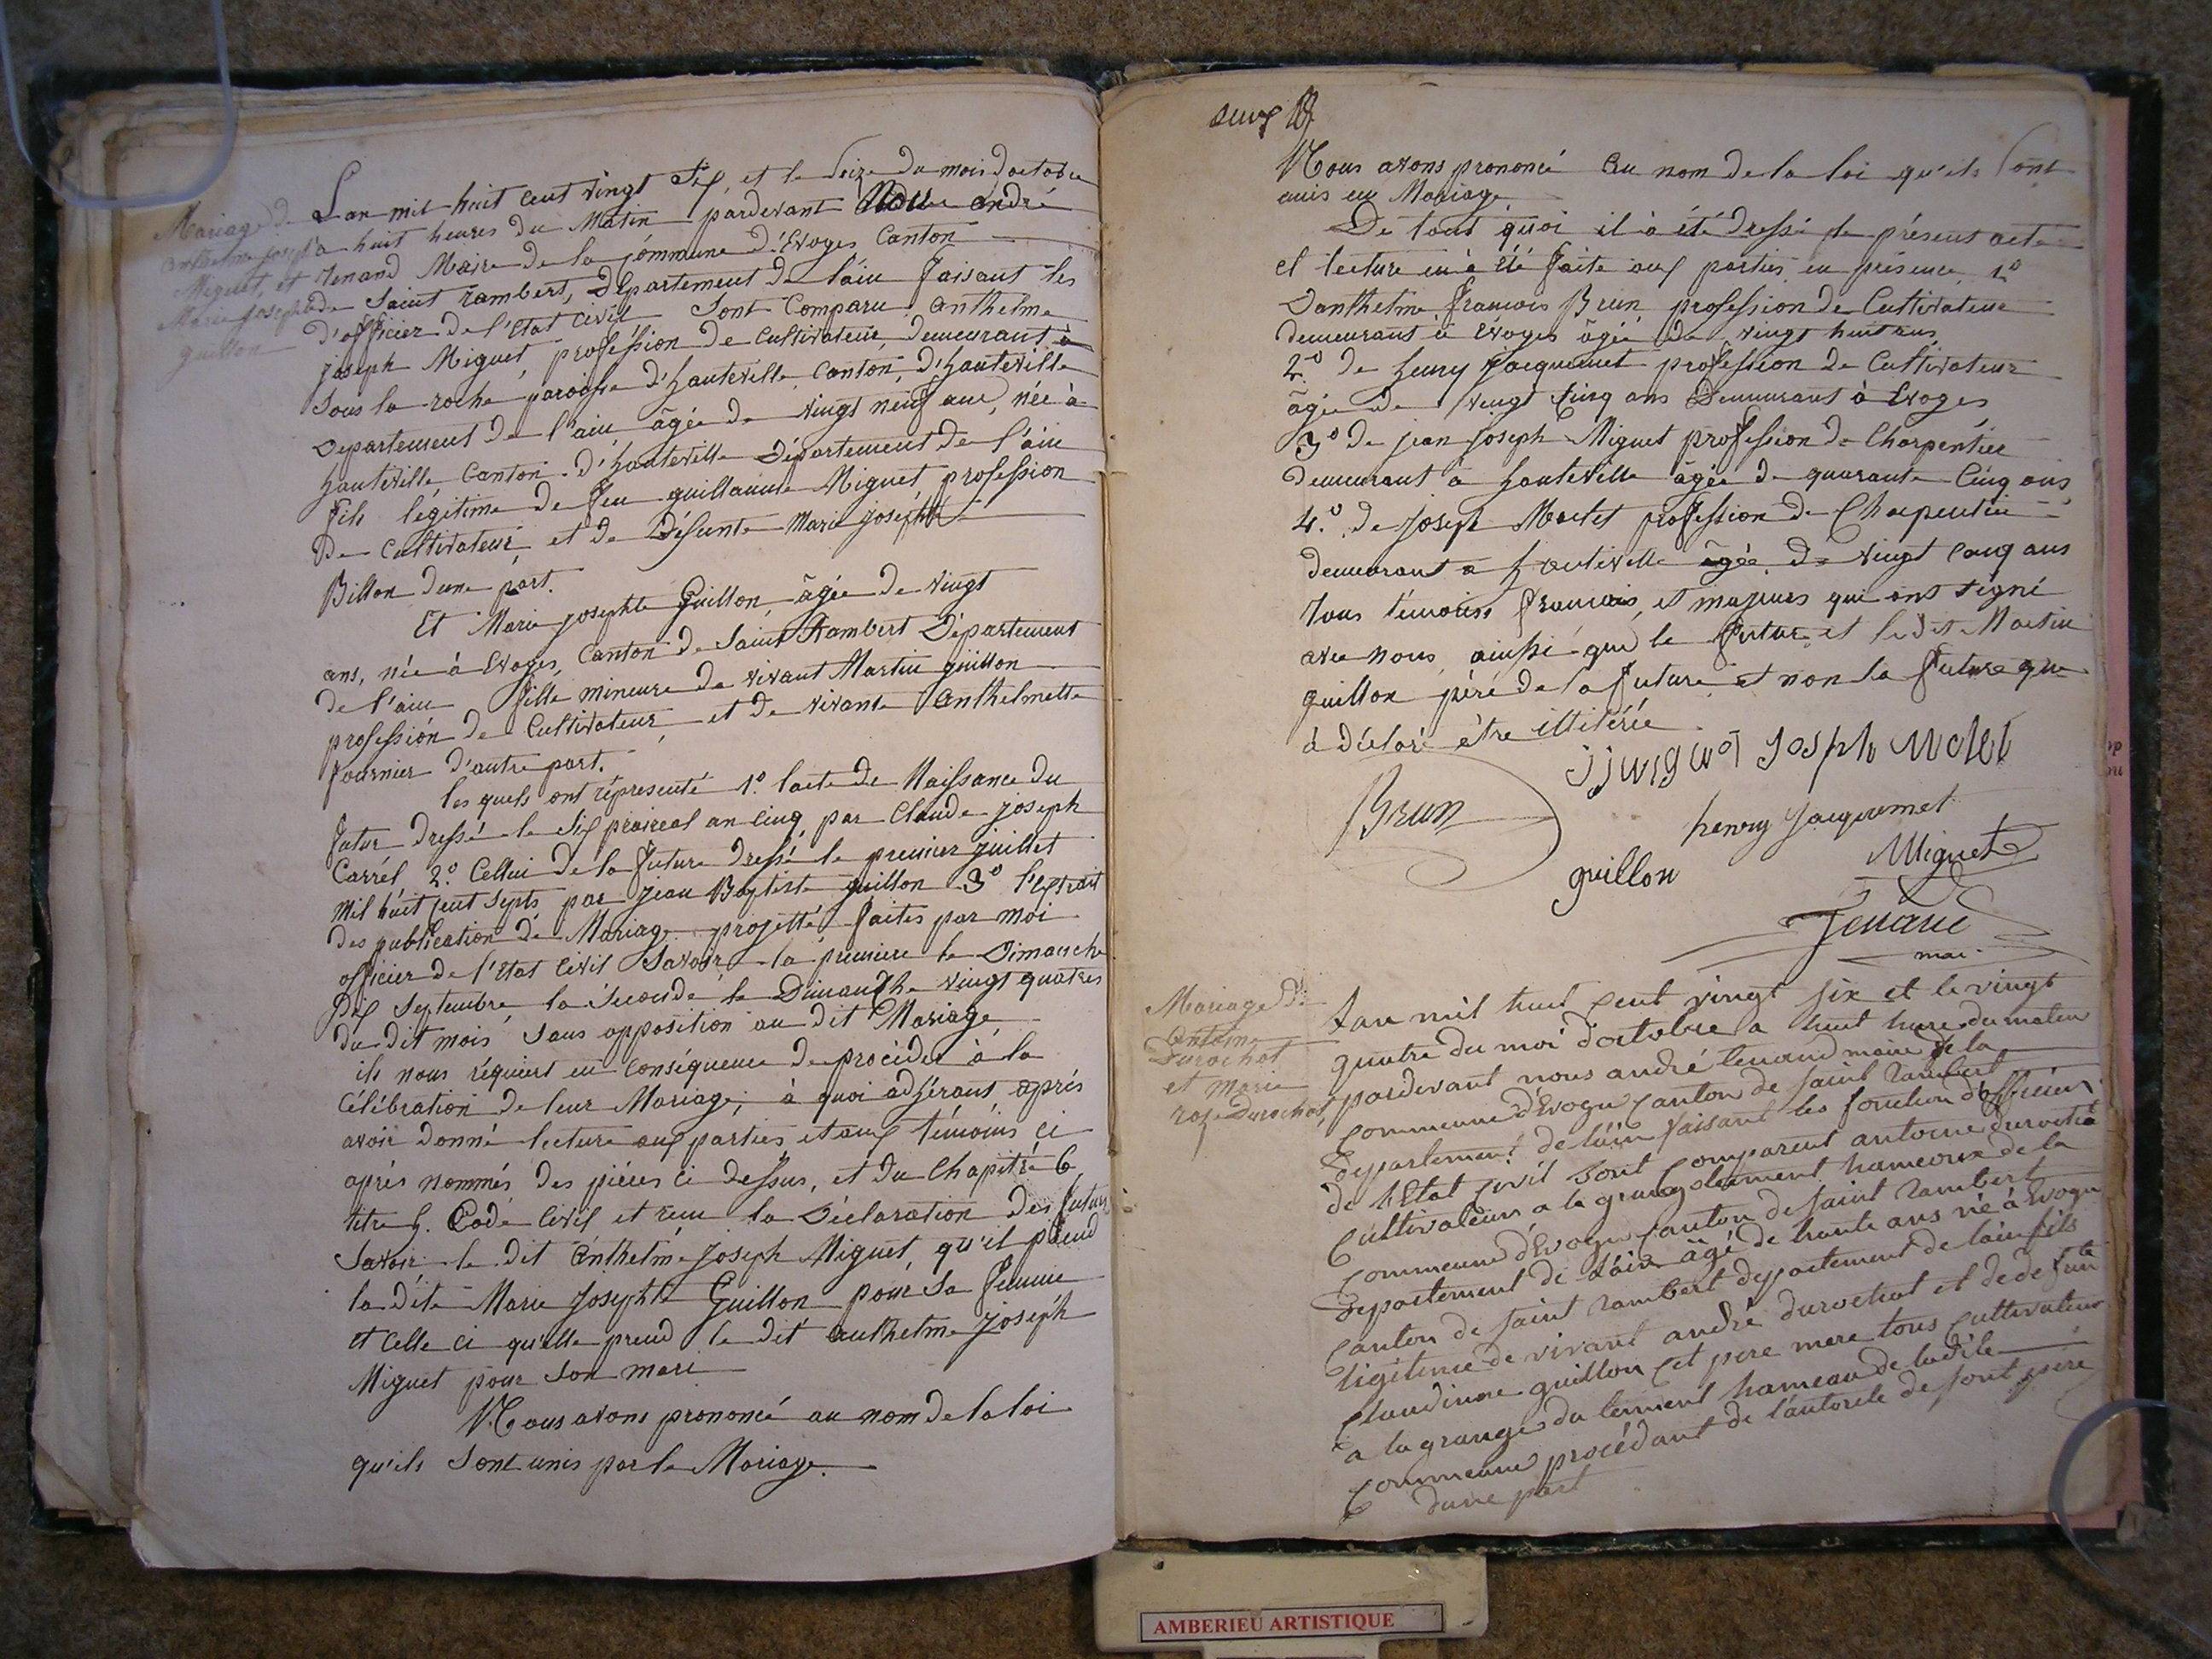 Mariage de
anthelme joseph
Miguet, et
Marie josephte
guillon
L'an mil huit cent vingt Six, et le Seize du mois d'octobre
à huit heures du Matin pardevant Nous andré
Tenand Maire de la commune d'Evoges Canton
de Saint Rambert, Département de l'ain faisant les
d'officier de l'Etat Civil Sont Comparu anthelme
joseph Miguet, profession de Cultivateur, demeurant à
Sous la roche paroisse d'hauteville, Canton, d'hauteville
Département de l'ain âgée de vingt neuf ans, née à
hauteville, Canton d'hauteville Département de l'ain
fils légitime de feu guillaume Miguet profession
De Cultivateur et de Défunte Marie josephte
Billon d'une part.
Et Marie josephte Guillon, âgée de vingt
ans, née à Evoges, Canton de Saint Rambert Département
de l'ain fille mineure de vivant Martin guillon
profession de Cultivateur et de vivante Anthelmette
fournier d'autre part.
les quels ont représenté 1.º l'acte de Naissance du
futur dressé le Six praireal an Cinq par Claude joseph
Carrel 2.º Cellui de la future dressé le premier juillet
Mil huit Cent Septs par jean Baptiste guillon 3.º l'Extrait
des publication de Mariage projetté faites par moi
officier de l'Etat Civil Savoir la premiere le Dimanche
Dix Septembre, la Seconde le Dimanche vingt quatres
du dit mois Sans opposition au dit Mariage,
ils nous réquiert en conséquence de procéder à la
célébration de leur Mariage; à quoi adhérant, après
avoir donné lecture aux parties et aux témoins ci
après nommés des pièces ci dessus, et du Chapitre 6
titre 5. Code Civil et reçu la Déclaration des futurs
Savoir le dit Anthelme Joseph Miguet, qu'il prend
la dite Marie Josephte Guillon pour Sa femme
et Celle ci qu'elle prend le dit anthelme joseph
Miguet pour Son mari
Nous avons prononcé au nom de la loi
qu'ils Sont unis par le Mariage.
Nous avons prononcé au nom de la loi qu'ils Sont
unis en Mariage.
De tout quoi il à été dressé le présent acte
et lecture en à été faite aux parties en présence 1.º
D'anthelme francois Brun profession de Cultivateur
demeurant à Evoges âgée de vingt huit ans
2.º de henry jacquemet profession de Cultivateur
âgée de vingt Cinq ans Demeurant à Evoges
3.º de jean joseph Miguet profession de Charpentier
demeurant à hauteville âgée de quarante Cinq ans
4.º de joseph profession de Charpentier
demeurant à hauteville âgée de vingt Cinq ans
tous témoins francais, et majeurs qui ont signé
avec nous ainssi que le futur et le dit Martin
guillon père de la future et non la future que
à déclaré être illitérée
joseph
Brun
henry jacquemet
guillon
Miguet
Tenand
mai
Mariage de
antoine
Durochat
et marie
roze Durochat
L'an mil huit cent vingt six et le vingt
quatre du moi d'octobre a huit hures du matin
pardevant nous andré tenand maire de la
commune d'Evoge canton de saint rambert
departement de l'ain faisant les fonction d'officier
de l'Etat civil sont comparent antoine durochat
Cultivateur a la grange hameaux de la
commune d'Evoge canton de saint rambert
departement de l'ain âgé de trente ans né à Evoge
canton de saint rambert departement de l'ain fils
légitime de vivant andré durochat et de defunte
Claudinne guillon cet pere mere tous cultivateur
a la grange du hameau de ladite
commune procédant de l'autorite de sont pere
dune part
AMBERIEU ARTISTIQUE